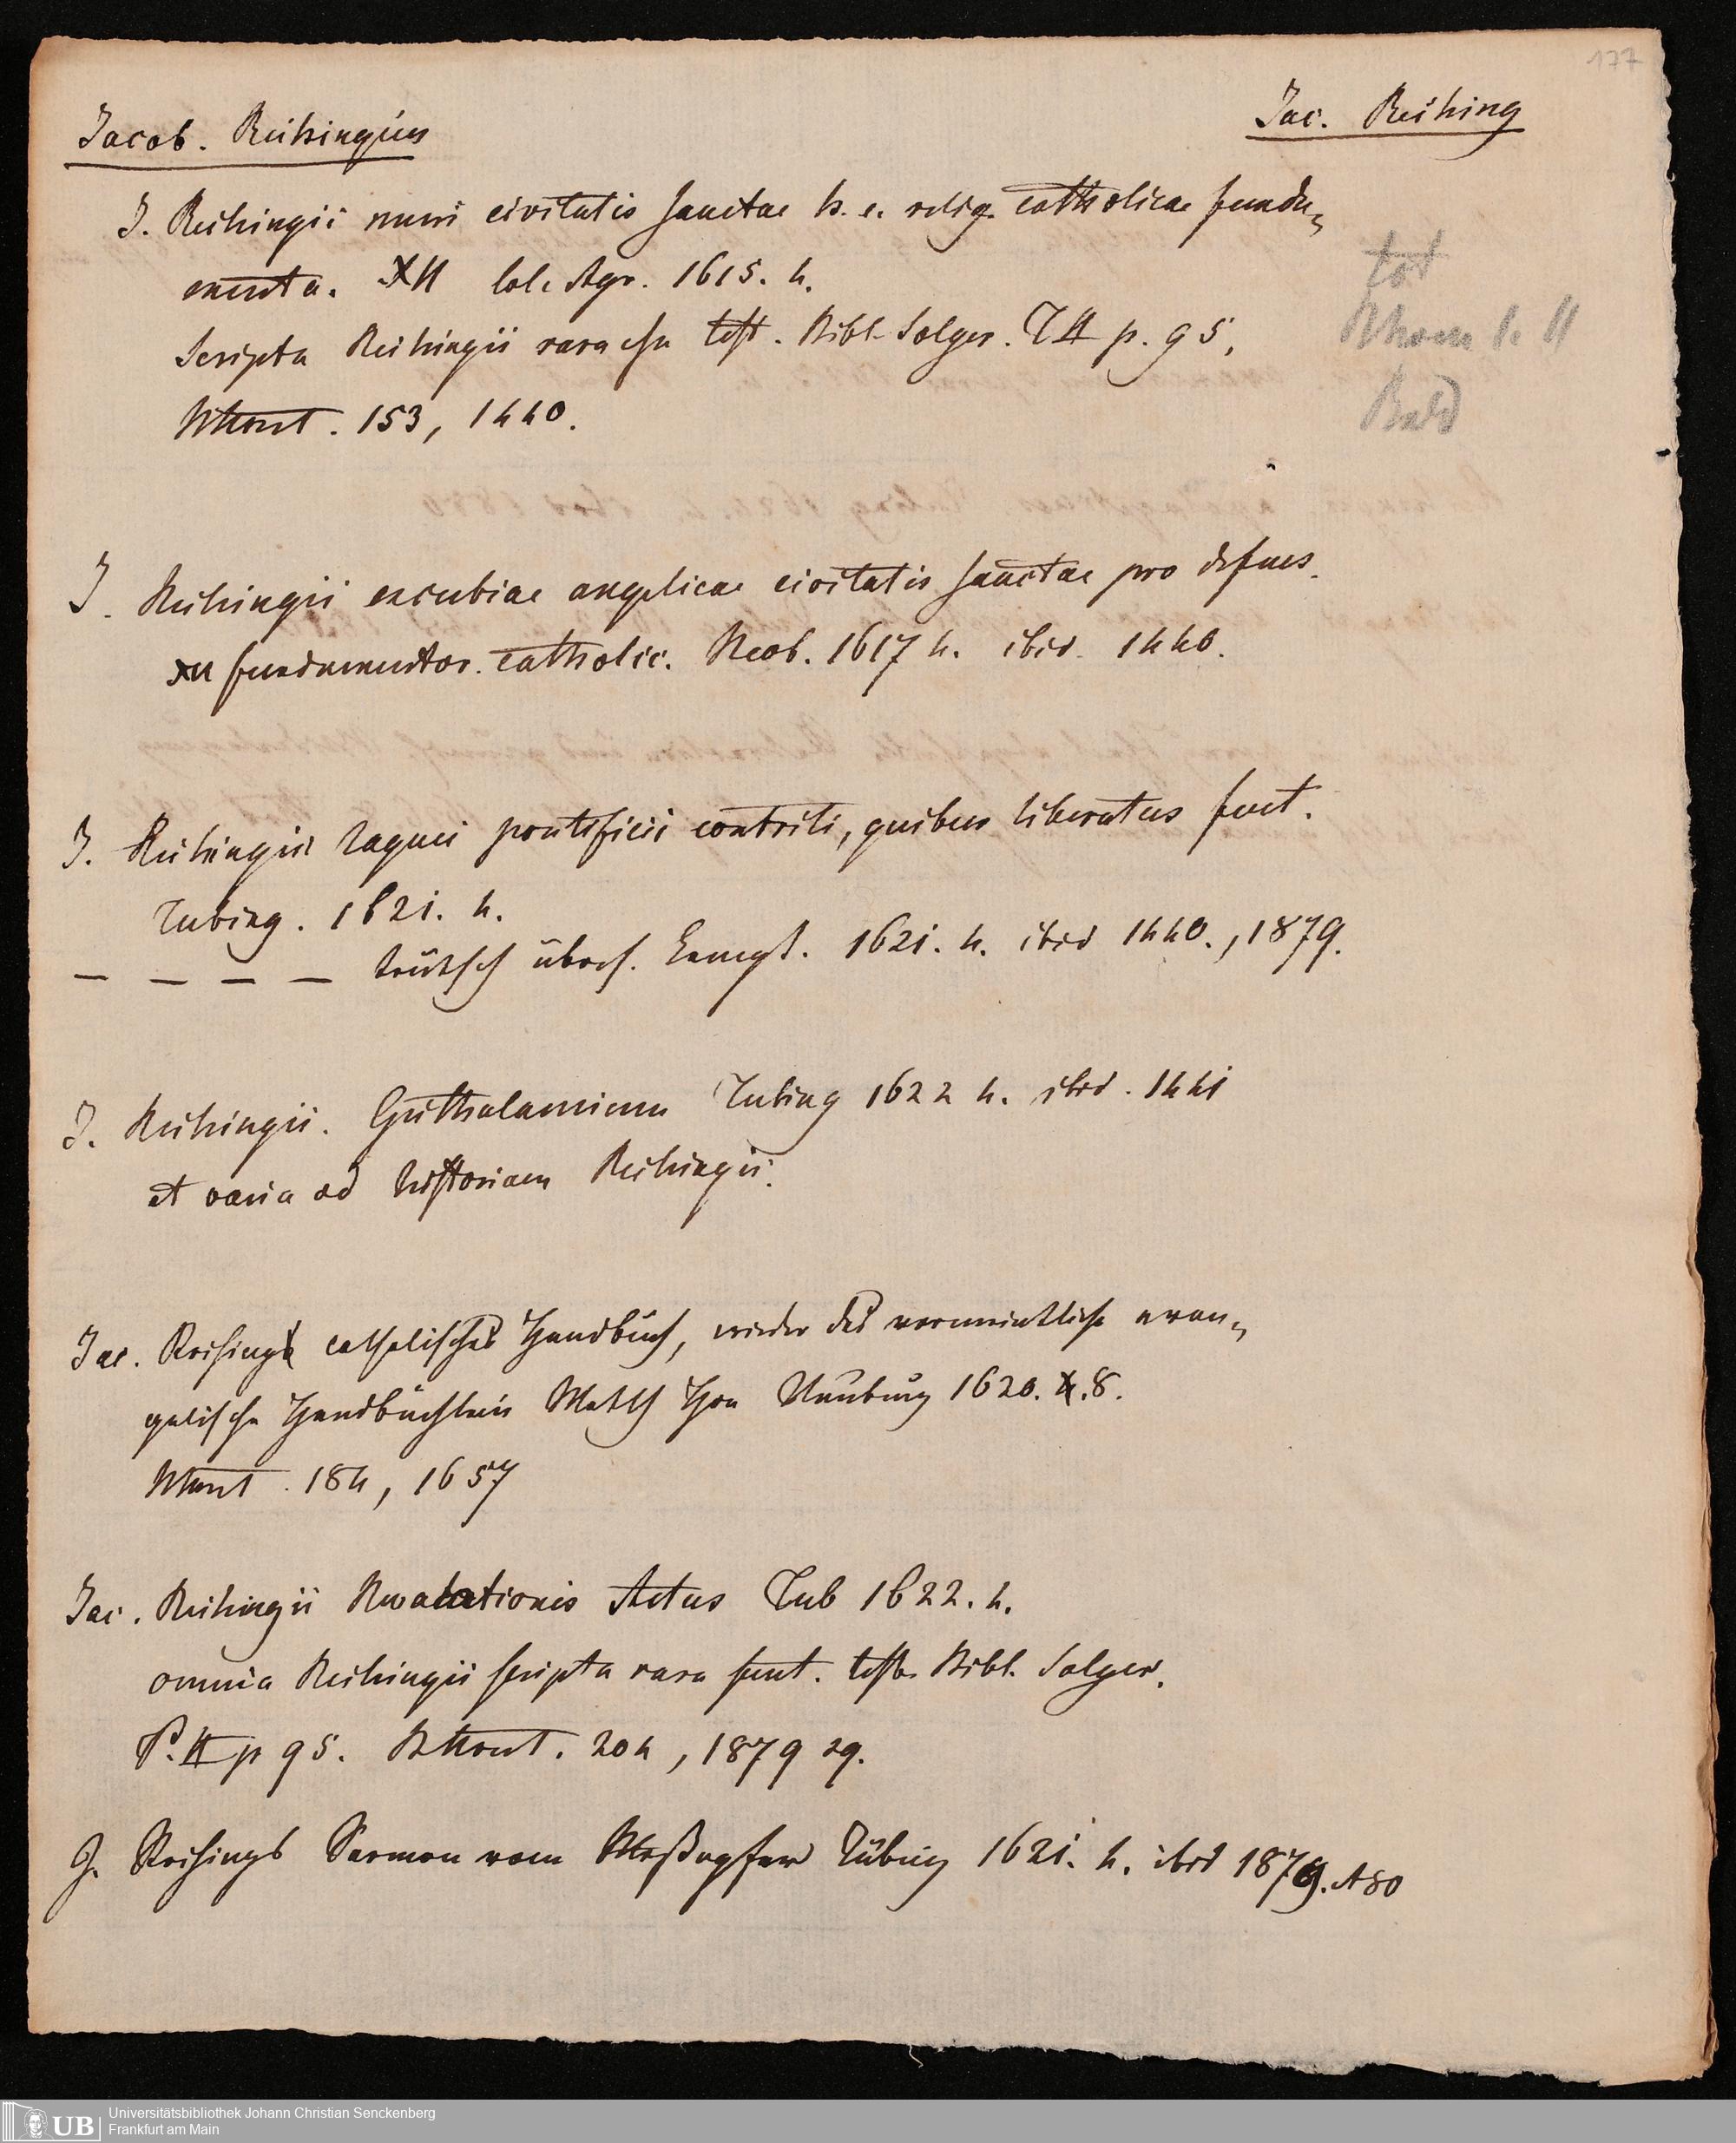 177
Jacob. Reihingius
Jac. Reihing
J. Reihingii muri civitatis sanctae h. e. relig. catholicae funda„
menta. XII Col. Agr. 1615. 4.
Scripta Reihingii rara esse test. Bibl. Solger. T II p. 95,
153, 1440.
tot
II
J. Reihingii excubiae angelicae civitatis sanctae pro defens.
XII fundamentor. catholic. Neob. 1617 4. ibid. 1440.
J. Reihingii laquei pontificii contriti, quibus liberatus fuit.
Tubing. 1621. 4.
— — — — teütsch übers. 1621. 4. ibid 1440., 1879.
J. Reihingii. Tubing 1622 4. ibid. 1441
et varia ad historiam Reihingii.
Jac. Reihings catholisches Handbuch, wieder das vermeintliche evan„
gelische Handbüchlein Matth Hoe Neuburg 1620. 8.
184, 1657
Jac. Reihingii Revocationis Actus Tub 1622. 4.
omnia Reihingii scripta rara sunt. teste Bibl. Solger.
P. II p 95. 204, 1879 sq.
J. Reihings Sermon vom Meßopfer Tübing 1621. 4. ibid 1879. 1880
Universitätsbibliothek Johann Christian Senckenberg
Frankfurt am Main
UB